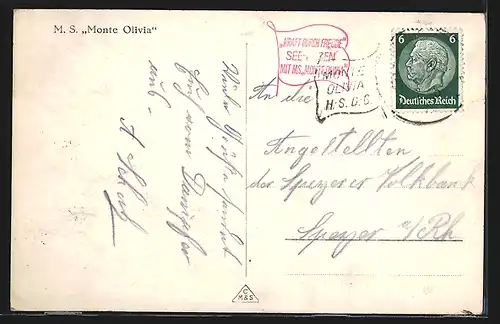 M. S. „Monte Olivia"
„KRAFT DURCH FREUDE"
SEE-
MIT M.S. „MONTE OLIVIA"
MONTE
OLIVIA
H.S.D.G.
6 6
Deutsches Reich
An die
Angestellten
der Speyerer Volksbank
Speyer a/Rh
Viele Grüße sendet
vom Dampfer
aus
A
C
M&S